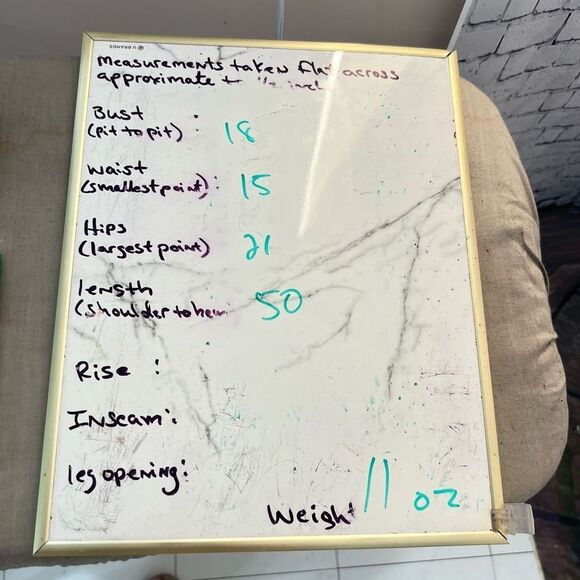 U BRANDS
measurements taken flat across
approximate to 1/2 inch
Bust
(pit to pit) : 18
waist
(smallest point): 15
Hips
(largest point) 21
length
(shoulder to hem 50
Rise :
Inseam:
leg opening:
Weight 11 oz